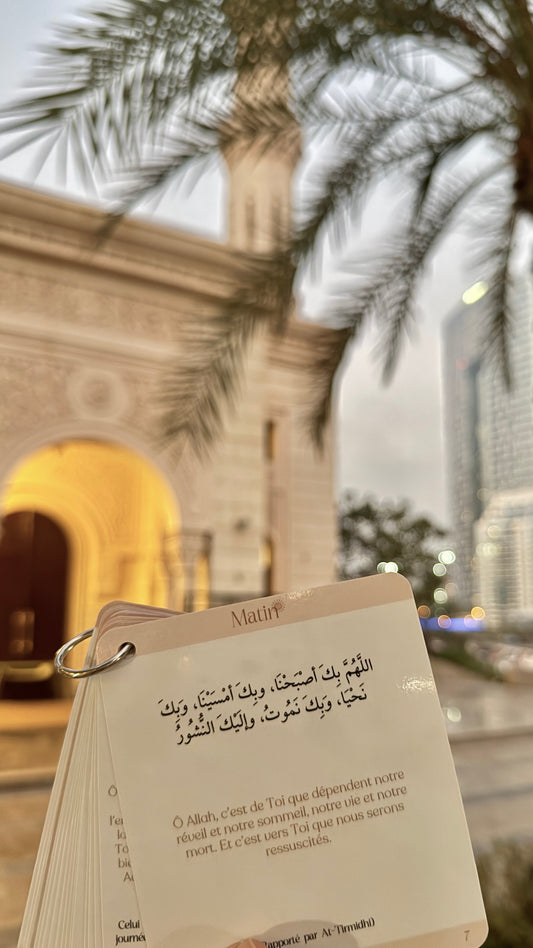 Matin
اللَّهُمَّ بِكَ أَصْبَحْنَا، وبِكَ أَمْسَيْنَا، وَبِكَ
نَحْيَا، وَبِكَ نَمُوتُ، وإلَيْكَ النُّشُورُ
Ô Allah, c'est de Toi que dépendent notre
réveil et notre sommeil, notre vie et notre
mort. Et c'est vers Toi que nous serons
ressuscités.
Rapporté par At-Tirmidhi)
7
Celui